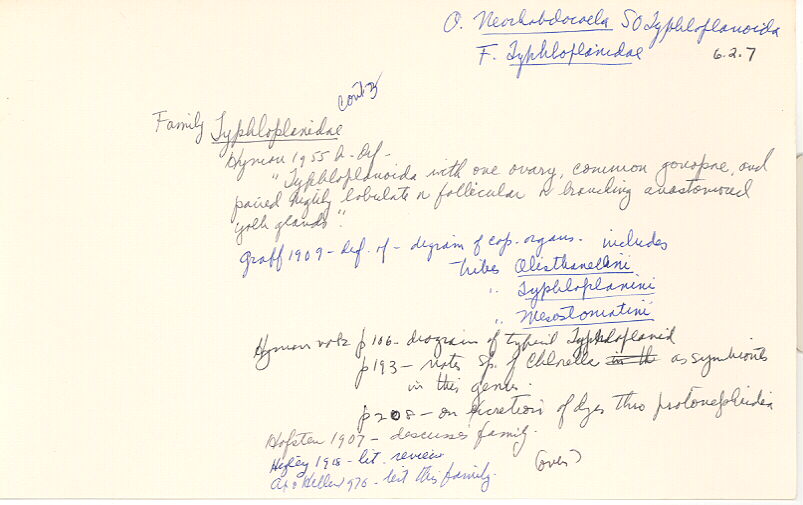 O. Neorhabdocoela SO Typhloplanoida
F. Typhloplanidae 6.2.7
cont'd
Family Typhloplanidae
Hyman 1955 h- def-
"Typhloplanoida with one ovary, common gonopore, and
paired highly lobulate or follicular or branching anastomosed
yolk glands".
Graff 1909 - def. of - diagram of cop. organs. includes
tribes Olisthanellini
" Typhloplanini
" Mesostomatini
Hyman vol 2 p 106 - diagram of typical Typhloplanid
p 193 - notes sp. of Chlorella in th as symbionts
in this genus.
p 208 - on excretion of dyes thru protonephridia
Hofsten 1907 - discusses family.
Higley 1918 - lit. review (over)
1976 - list this family.